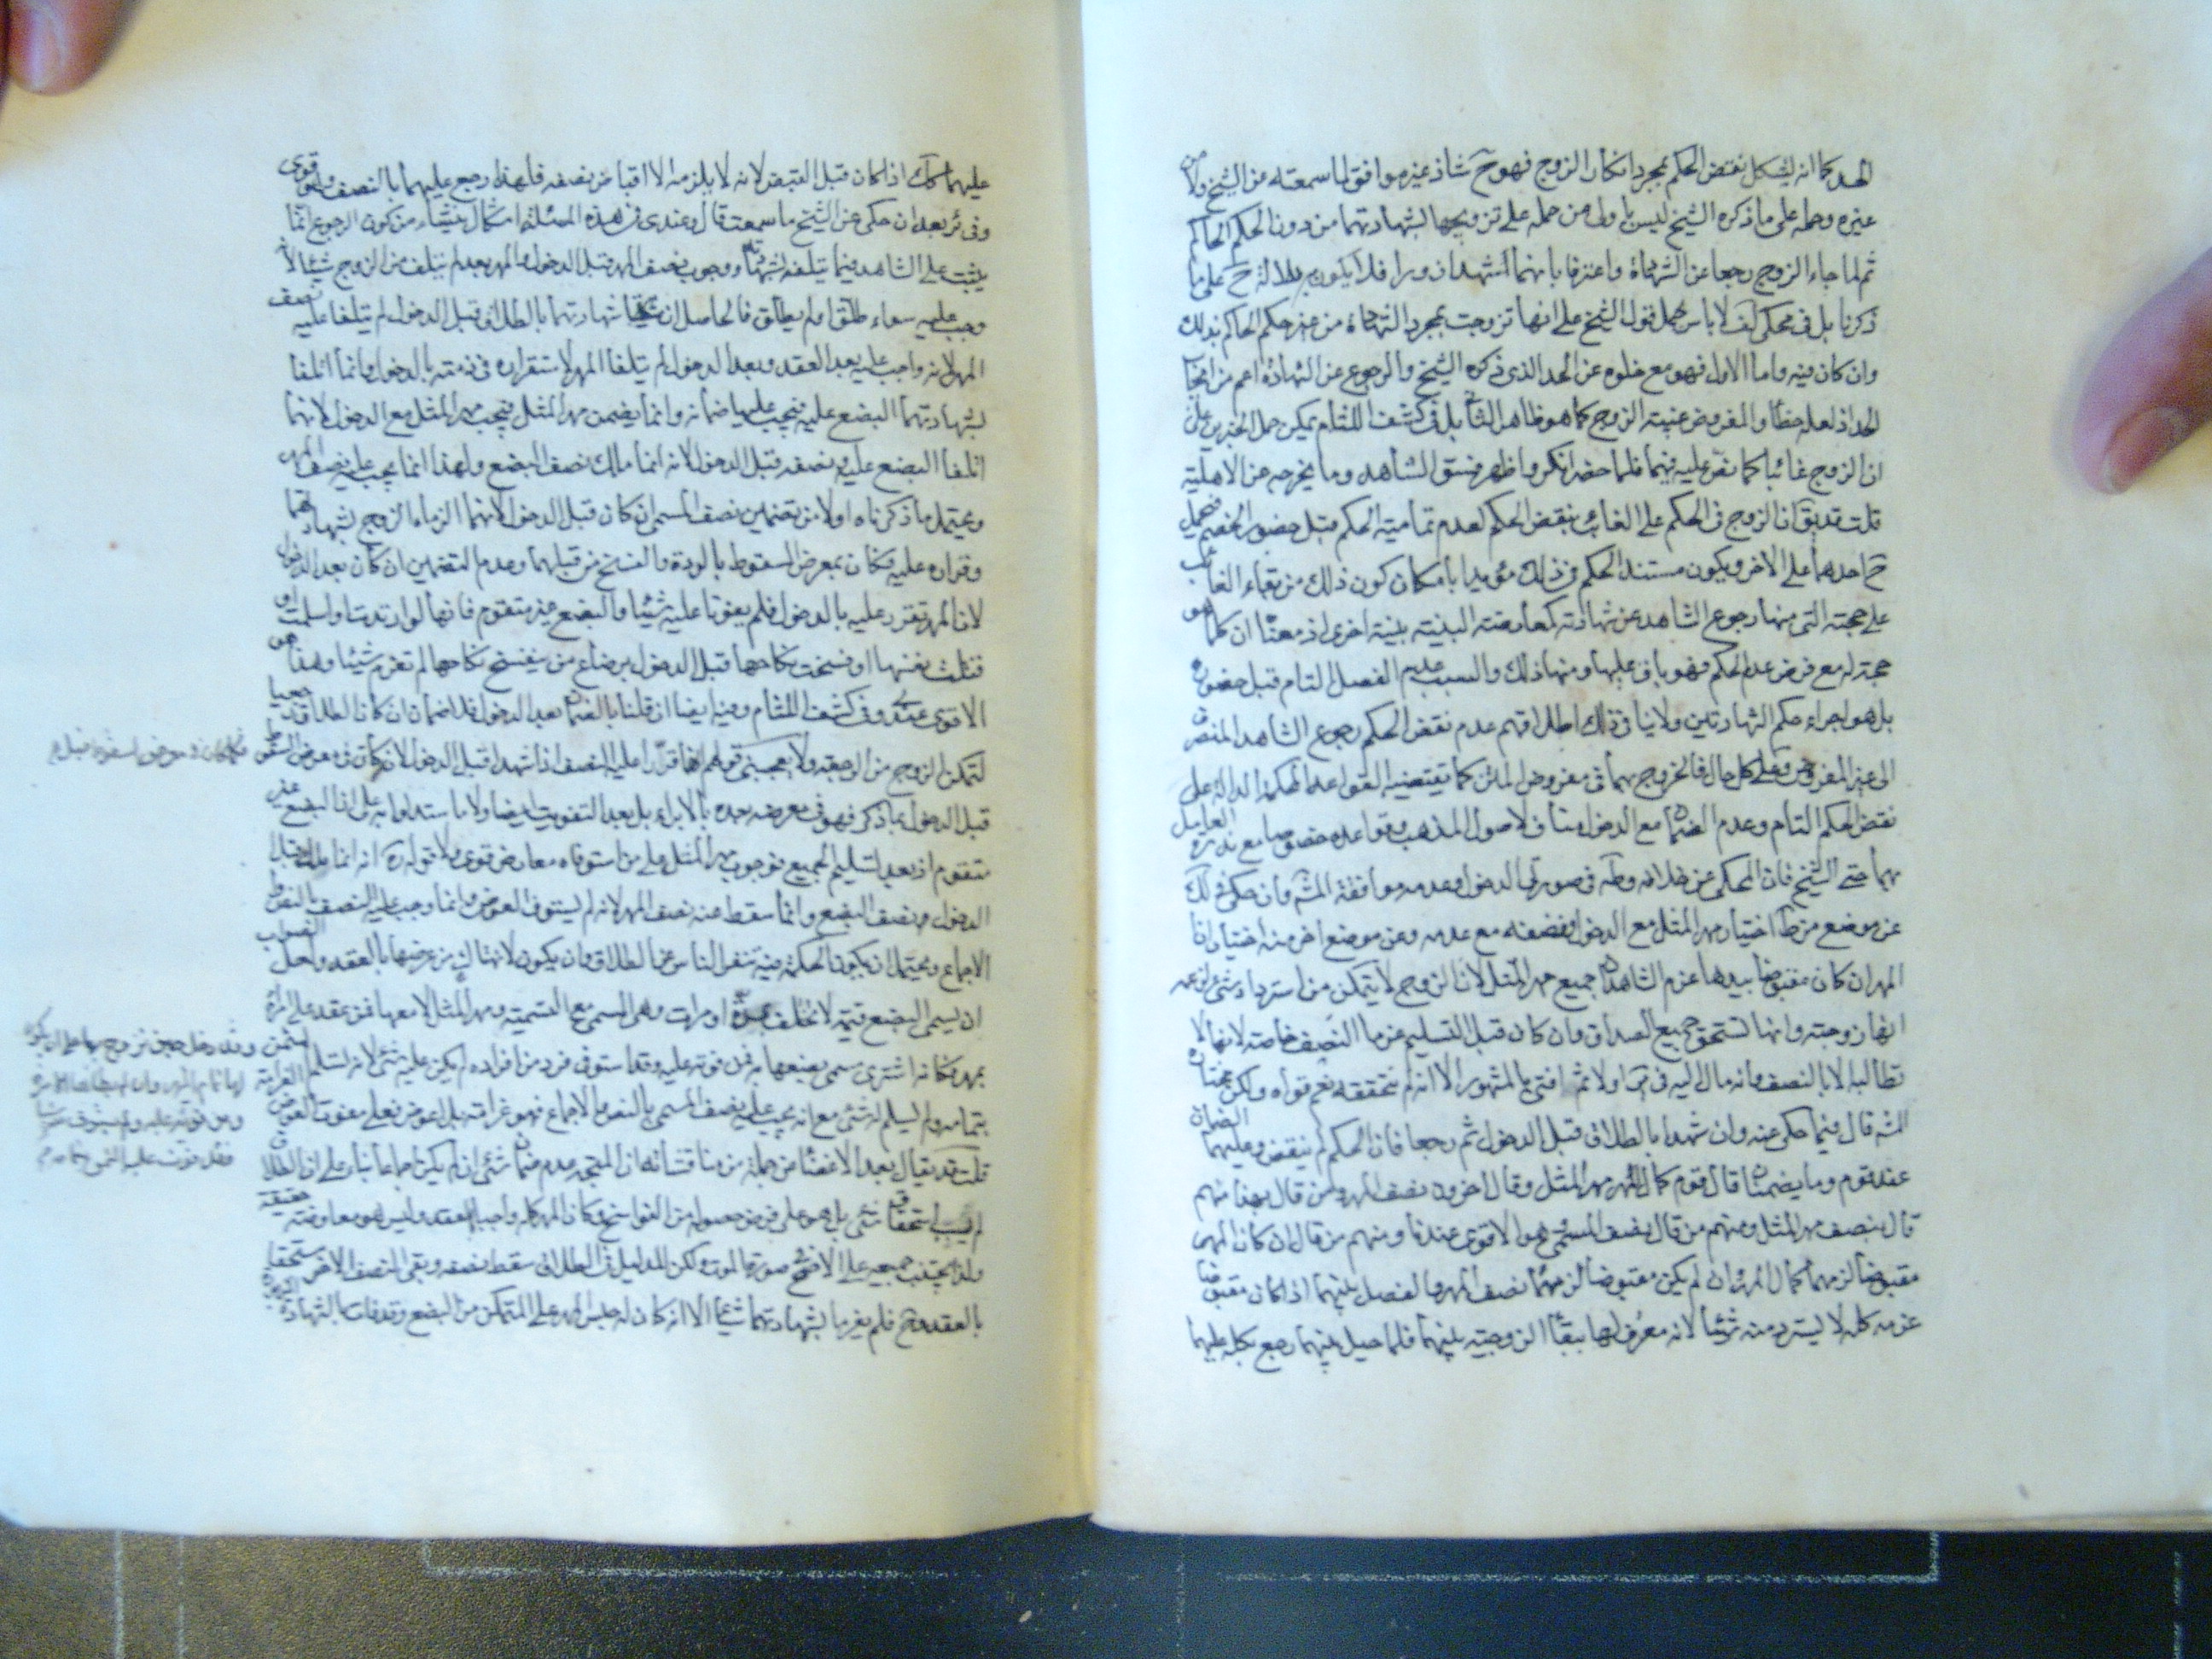 الحد كما انه يشكل نقض الحكم بمجرد انكار الزوج فهو ح شاذ غير موافق لما سمعته عن الشيخ ولا من
غيره وحمله على ما ذكره الشيخ ليس باولى من حمله على تزويجها بشهادتهما من دون الحكم الحاكم
ثم لما جاء الزوج رجعا عن الشهادة واعترفا بانهما شهدا زورا فلا يكون دلالة ح على ما
ذكرنا بل في محكي لف لا باس بحمل قول الشيخ على انها تزوجت بمجرد الشهادة من غير حكم الحاكم بذلك
وان كان فيه واما الاول فهو مع خلوه عن الحد الذي ذكره الشيخ والرجوع عن الشهادة اعم من ايجاب
الحد اذ لعله خطأ والمفروض غيبته الزوج كما هو ظاهر الثاني بل في كشف اللثام يمكن حمل الخبرين على
ان الزوج غائبا كما نص عليه فيهما فلما حضر انكر واظهر فسق الشاهد وما يخرجه عن الاهلية
قلت قد يق ان الزوج في الحكم على الغائب ينقض الحكم لعدم تمامية الحكم قبل حضور الخصم فيحمل
ح احدهما على الاخر ويكون مستند الحكم في ذلك مؤيدا بامكان كون ذلك من بقاء الغائب
على حجته التي منها رجوع الشاهد عن شهادته كمعارضته البينة ببينة اخرى اذ معنا ان كلما هو
حجة له مع فرض عدم الحكم فهو باق عليها ومنها ذلك والسبب عدم الفصل التام قبل حضوره
بل هو اجراء حكم الشهادتين ولا ينافي ذلك اطلاقهم عدم نقض الحكم رجوع الشاهد المنصرف
الى غير المفروض وعلى كل حال فالخروج بهما في مفروض المتن كما تقتضيه القواعد المحكمة الدالة على
نقض الحكم التام وعدم الضمان مع الدخول مناف لاصول المذهب وقواعده خصوصا مع ندرة العامل
بهما حتى الشيخ فان المحكي عن خلافه وط في صورتي الدخول وعدمه موافقة المش وان حكي في لك
عن موضع من ط اختيار مهر المثل مع الدخول ونصفه مع عدمه وعن موضع اخر منه اختيار ان
المهر ان كان مقبوضا بيدها غرم الشاهدان جميع مهر المثل لان الزوج لا يتمكن من استرداد شيء لزعمه
انها زوجته وانها تستحق جميع الصداق وان كان قبل التسليم غرما النصف خاصة لانها لا
تطالبه الا بالنصف وانه مال اليه في اولا ثم افتى بالمشهور الا انه لم نتحققه نعم قواه ولكن مختاره
المش قال فيما حكي عنه وان شهدا بالطلاق قبل الدخول ثم رجعا فان الحكم لم ينقض وعليهما الضمان
عند قوم وما يضمنان قال قوم كمال المهر مهر المثل وقال اخرون نصف المهر ومن قال بهذا منهم
قال بنصف مهر المثل ومنهم من قال بنصف المسمى هو الاقوى عندنا ومنهم من قال ان كان المهر
مقبوضا لزمهما كمال المهر وان لم يكن مقبوضا لزمهما نصف المهر والفصل بينهما اذا كان مقبوضا
غرمه كله لا يسترد منه شيئا لانه معرف لها ببقاء الزوجية بينهما فلما حيل بينهما رجع بكله عليهما
عليهما كك اذا كان قبل القبض لانه لا يلزمه الا اقباض نصفه فلهذا رجع عليهما بالنصف وهو قوي
وفي ئر بعد ان حكى عن الشيخ ما سمعت قال وعندي في هذه المسئلة اشكال ينشاء من كون الرجوع انما
يثبت على الشاهد فيما يتلفه بشهادته ووجوب نصف المهر قبل الدخول والمهر بعده لم يتلف من الزوج شيئا لانه
وجب عليه سواء طلق او لم يطلق فالحاصل ان شهادتهما بالطلاق قبل الدخول لم يتلفا عليه نصف
المهر لانه واجب عليه بعد العقد وبعد الدخول لم يتلفا المهر لاستقراره في ذمته بالدخول وانما اتلفا
بشهادتهما البضع عليه فيجب عليهما ضمانه وانما يضمن مهر المثل فيجب مهر المثل مع الدخول لانهما
اتلفا البضع عليه ونصفه قبل الدخول لانه انما ملك نصف البضع ولهذا انما يجب عليه نصف المهر
ويحتمل ما ذكرناه اولا من تضمين نصف المسمى ان كان قبل الدخول لانهما الزماه الزوج بشهادتهما
وقراره عليه فكان بمعرض السقوط بالردة والفسخ من قبلها وعدم التضمين ان كان بعد الدخول
لان المهر تقرر عليه بالدخول فلم يفوتا عليه شيئا والبضع غير متقوم فانها لو ارتدت او اسلمت او
قتلت نفسها او فسخت نكاحها قبل الدخول برضاع من ينفسخ نكاحها لم تغرم شيئا وهذا هو
الاقوى عندي وفي كشف اللثام وفيه ايضا ان قلنا بالضمان بعد الدخول فلا ضمان ان كان الطلاق رجعيا
لتمكن الزوج من الرجعة ولا يعجبني قولهم انهما قررا عليه النصف اذا شهدا قبل الدخول لانه كان في معرض السقوط
قبل الدخول بما ذكر فهو في معرضه بعده بالابراء بل بعد التفويت ايضا ولا ما استدلوا به على ان البضع غير
متقوم اذ بعد تسليم الجميع فوجوب مهر المثل على من استوفاه معارض قوي ولا قوله ره انه انما ملك قبل
الدخول نصف البضع وانما سقط عنه نصف المهر لانه لم يستوف العوض وانما وجب عليه النصف بالنص و
الاجماع ويحتمل ان يكون الحكمة فيه تنفر الناس عن الطلاق وان يكون لانتهاك من عرضها بالعقد ولعل الصواب
ان يسمى البضع قيمة لا تختلف مرة او مرات وهي المسمى مع التسمية ومهر المثل لا معها فمن عقد على امرأة
بمهر فكانه اشترى بضعها به فمن فوته عليه وقد استوفى فردا من افراده لم يكن عليه شيء لانه تسلم المثمن
بتمامه ولم يسلم له شيء مع انه يجب عليه نصف المسمى بالنص والاجماع فهو غرامة بلا عوض فعلى مفوت العوض الغرامة
قلت قد يقال بعد الاغضاء عن جملة من مناقشاته ان المتجه عدم ضمان شيء ان لم يكن اجماعا بناء على ان الطلاق
لم يسبب استحقاق شيء بل هو على فرض حصوله من الفواسخ وكان المهر كله واجبا بالعقد وليس هو معاوضة حقيقة
ولذا يجب جميعه على الاصح صورة الموت ولكن الدليل في الطلاق سقط نصفه وبقي النصف الاخر مستحقا
بالعقد وح فلم يغرما بشهادتهما شيئا الا انه كان له حبس المهر على المتمكن من البضع وقد فات بالشهادة